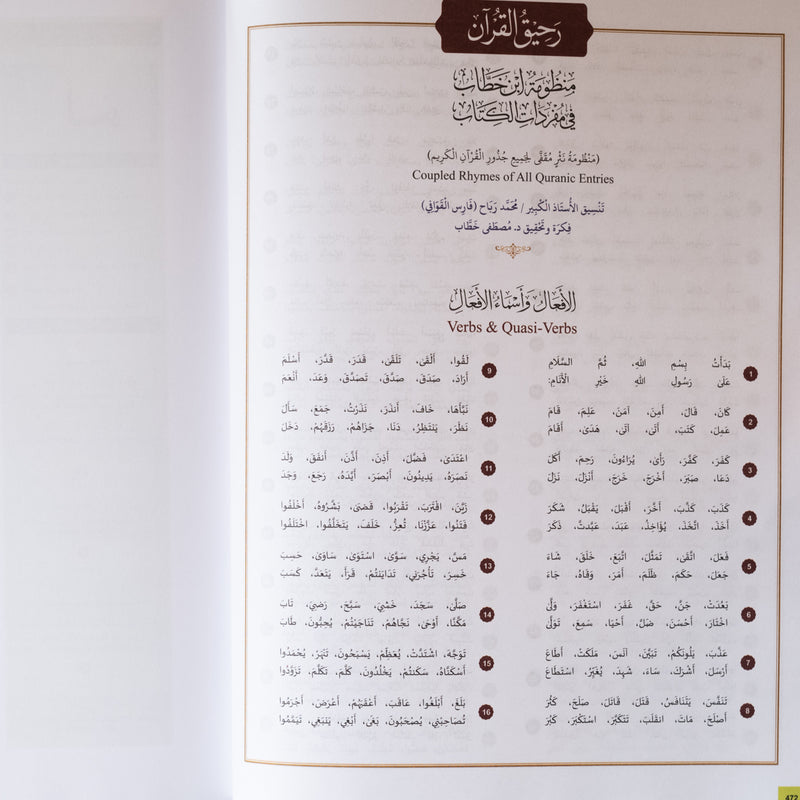 رَحِيْقُ الْقُرْآن
مَنْظُومَةُ ابْنِ خَطَّاب
فِي مُفْرَدَاتِ الْكِتَاب
(مَنْظُومَةُ نَثْرٍ مُقَفًّى لِجَمِيعِ جُذُورِ الْقُرْآنِ الْكَرِيم)
Coupled Rhymes of All Quranic Entries
تَنْسِيق الأُسْتَاذ الْكَبِير / مُحَمَّد رَبَاح (فَارِس الْقَوَافِي)
فِكرَة وتَحْقِيق د. مُصطَفى خَطَّاب
الأَفْعَال وَأَسْمَاءُ الأَفْعَال
Verbs & Quasi-Verbs
1
بَدَأتُ بِسْمِ اللهِ، ثُمَّ السَّلَامِ
عَلَىٰ رَسُولِ اللهِ خَيْرِ الأَنَامِ:
2
كَانَ، قَالَ، أَمِنَ، آمَنَ، عَلِمَ، قَامَ
عَمِلَ، كَتَبَ، أَتَى، آتَى، هَدَى، أَقَامَ
3
كَفَرَ، كَفَّرَ، رَأَى، يُرَاءُونَ، رَحِمَ، أَكَلَ
دَعَا، صَبَرَ، أَخْرَجَ، خَرَجَ، أَنْزَلَ، نَزَلَ
4
كَذَبَ، كَذَّبَ، أَخَّرَ، أَقْبَلَ، يَقْبَلُ، شَكَرَ
أَخَذَ، اتَّخَذَ، يُؤَاخِذُ، عَبَدَ، عَبَّدتَّ، ذَكَرَ
5
فَعَلَ، اتَّقَى، تَمَثَّلَ، اتَّبَعَ، خَلَقَ، شَاءَ
جَعَلَ، حَكَمَ، ظَلَمَ، أَمَرَ، وَقَاهُ، جَاءَ
6
بَعُدَتْ، جَنَّ، حَقَّ، غَفَرَ، اسْتَغْفَرَ، وَلَّى
اخْتَارَ، أَحْسَنَ، ضَلَّ، أَحْيَا، سَمِعَ، تَوَلَّى
7
عَذَّبَ، يَلُونَكُمْ، تَبَيَّنَ، آنَسَ، مَلَكَتْ، أَطَاعَ
أَرْسَلَ، أَشْرَكَ، سَاءَ، شَهِدَ، يُغَيِّرُ، اسْتَطَاعَ
8
تَنَفَّسَ، يَتَنَافَسُ، قَتَلَ، قَاتَلَ، صَلَحَ، كَثُرَ
أَصْلَحَ، مَاتَ، انقَلَبَ، تَتَكَبَّرَ، اسْتَكْبَرَ، كَبُرَ
9
لَقُوا، أَلْقَى، تَلَقَّى، قَدَرَ، قَدَّرَ، أَسْلَمَ
أَرَادَ، صَدَقَ، صَدَّقَ، تَصَدَّقَ، وَعَدَ، أَنْعَمَ
10
نَبَّأَهَا، خَافَ، أَنذَرَ، نَذَرْتُ، جَمَعَ، سَأَلَ
نَظَرَ، يَنتَظِرُ، دَنَا، جَزَاهُمْ، رَزَقَهُمْ، دَخَلَ
11
اعْتَدَى، فَضَّلَ، أَذِنَ، أَذَّنَ، أَنفَقَ، وَلَدَ
نَصَرَهُ، يَدِينُونَ، أَبْصَرَ، أَيَّدَهُ، رَجَعَ، وَجَدَ
12
زَيَّنَ، اقْتَرَبَ، تَقْرَبُوا، قَضَى، بَشَّرُوهُ، أَخْلَفُوا
فَتَنُوا، عَزَّزْنَا، تُعِزُّ، خَلَفَ، يَتَخَلَّفُوا، اخْتَلَفُوا
13
مَسَّ، يَجْرِي، سَوَّى، اسْتَوَى، سَاوَى، حَسِبَ
خَسِرَ، تَأْجُرَنِي، تَدَايَنتُمْ، قَرَأَ، يَتَعَدَّ، كَسَبَ
14
صَلَّى، سَجَدَ، خَشِيَ، سَبَّحَ، رَضِيَ، تَابَ
مَكَّنَّا، أَوْحَى، نَجَّاهُمْ، تَنَاجَيْتُمْ، يُحِبُّونَ، طَابَ
15
تَوَجَّهَ، اشْتَدَّتْ، يُعَظِّمْ، يَسْبَحُونَ، تَنْهَرْ، يُحْمَدُوا
أَسْكَنَّاهُ، سَكَنتُمْ، يَخْلُدُونَ، كَلَّمَ، تَكَلَّمَ، تَزَوَّدُوا
16
بَلَغَ، أَبْلَغُوا، عَاقَبَ، أَعْقَبَهُمْ، أَعْرَضَ، أَجْرَمُوا
تُصَاحِبْنِي، يُصْحَبُونَ، بَغَىٰ، أَبْغِي، يَنبَغِي، تَيَمَّمُوا
472